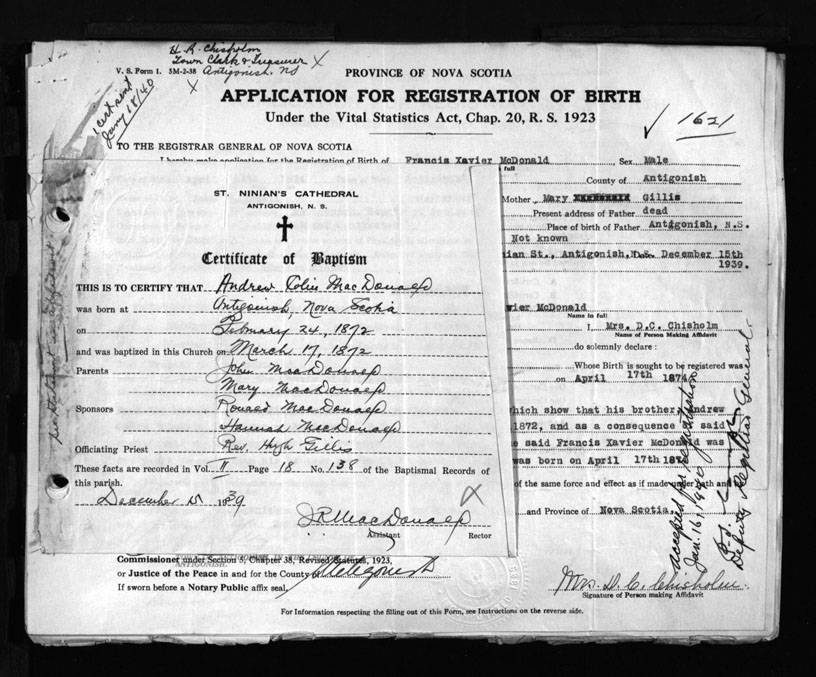 H. R. Chisholm
Town Clerk & Treasurer X
V. S. Form 1. 5M-2-38 Antigonish, NS
X
1 cert sent
Jany 18/40
PROVINCE OF NOVA SCOTIA
APPLICATION FOR REGISTRATION OF BIRTH
Under the Vital Statistics Act, Chap. 20, R. S. 1923
✓ 1621
TO THE REGISTRAR GENERAL OF NOVA SCOTIA
I hereby make application for the Registration of Birth of Francis Xavier McDonald Sex Male
in full
County of Antigonish
Mother Mary XXXXXXXXX Gillis
Present address of Father dead
Place of birth of Father Antigonish, N.S.
Not known
ian St., Antigonish, N.S. Date December 15th
1939.
vier McDonald
Name in full
I, Mrs. D.C. Chisholm
Name of Person Making Affidavit
do solemnly declare :
Whose Birth is sought to be registered was
on April 17th 1874
which show that his brother Andrew
1872, and as a consequence I said
e said Francis Xavier McDonald was
was born on April 17th 187
of the same force and effect as if made under oath and
and Province of Nova Scotia
accepted for registration
Jan. 16, 1940
Deputy Registrar General.
ST. NINIAN'S CATHEDRAL
ANTIGONISH, N. S.
Certificate of Baptism
THIS IS TO CERTIFY THAT Andrew Colin MacDonald
was born at Antigonish, Nova Scotia
on February 24, 1872
and was baptized in this Church on March 17, 1872
Parents John MacDonald
Mary MacDonald
Sponsors Ronald MacDonald
Hannah MacDonald
Officiating Priest Rev. Hugh Gillis
These facts are recorded in Vol. II Page 18 No. 138 of the Baptismal Records of
this parish.
December 15 1939
J R MacDonald
Assistant Rector
Commissioner under Section 5, Chapter 38, Revised Statutes, 1923,
or Justice of the Peace in and for the County of Antigonish
If sworn before a Notary Public affix seal.
Mrs. D. C. Chisholm
Signature of Person making Affidavit
For Information respecting the filling out of this Form, see Instructions on the reverse side.